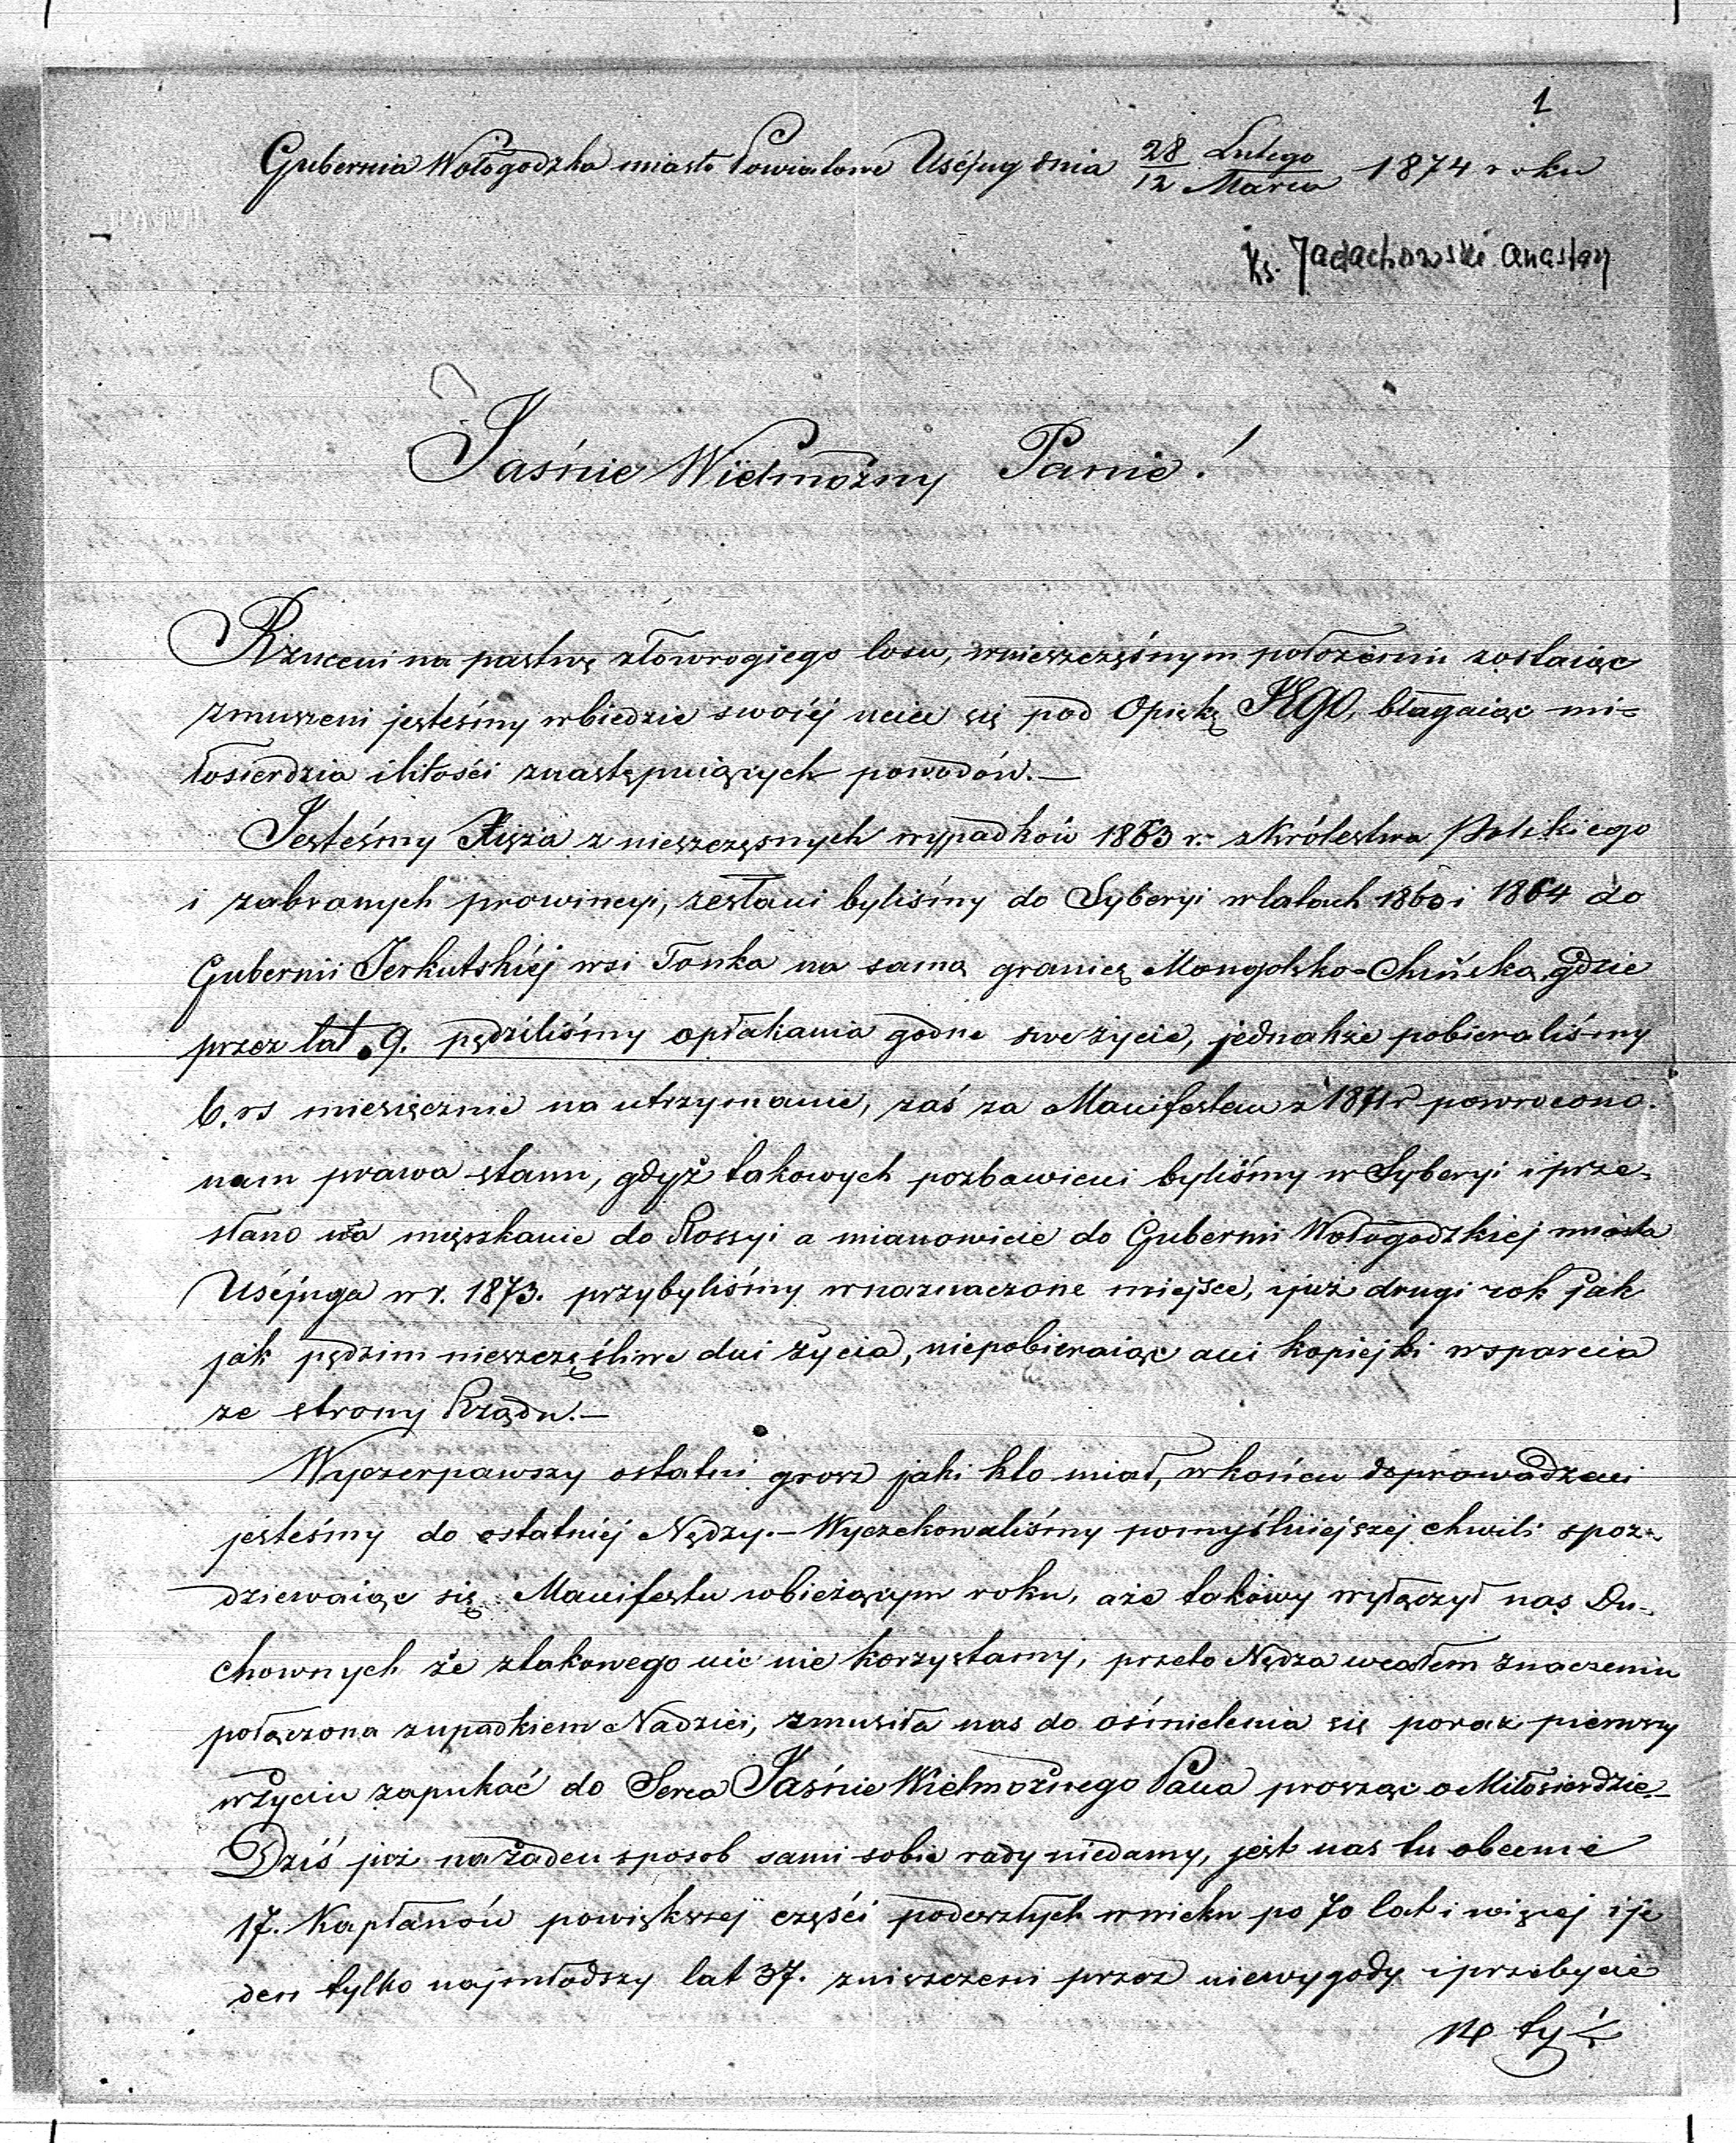 1
Gubernia Wołogodzka miasto Powiatowe Uśćjug dnia 28/12 Lutego/Marca 1874 roku
Ks. Jadachowski Anastazy
Jaśnie Wielmożny Panie!
Rzuceni na pastwę złowrogiego losu, wnieszczęśnym położeniu zostaiąc
zmuszeni jesteśmy wbiedzie swoiéj uciec się pod Opiekę JEGO, błagaiąc mi-
łosierdzia ilitości znastępuiących powodów.—
Jesteśmy Xięża z nieszczęsnych wypadków 1863 r. zKrólestwa Polskiego
i zabranych prowincyi, zesłani byliśmy do Syberyi wlatach 1863 i 1864 do
Gubernii Jerkutskiéj wsi Tonka na samą granicę Mongolsko-Chińską, gdzie
przez lat 9. pędziliśmy opłakania godne swe życie, jednakże pobieraliśmy
6. rs miesięcznie na utrzymanie, zaś za Manifestem z 1871 r powrócono
nam prawa stanu, gdyż takowych pozbawieni byliśmy w Syberyi i prze-
słano na mięszkanie do Rossyi a mianowicie do Gubernii Wołogodzkiej miasta
Uśćjuga w r. 1873. przybyliśmy wnaznaczone miejsce, ijuż drugi rok jak
jak pędzim nieszczęśliwe dni życia, niepobieraiąc ani kopiejki wsparcia
ze strony Rządu.—
Wyczerpawszy ostatni grosz jaki kto miał, wkońcu doprowadzeni
jesteśmy do ostatniéj Nędzy.— Wyczekowaliśmy pomyślniejszéj chwili spoz-
dziewaiąc się Manifestu wbieżącym roku, aże takowy wyłączył nas Du-
chownych że ztakowego nic nie korzystamy, przeto Nędza wcałem znaczeniu
połączona zupadkiem Nadziei, zmusiła nas do ośmielenia się poraz pierwszy
wżyciu zapukać do Serca Jaśnie Wielmożnego Pana prosząc o Miłosierdzie.—
Dziś już nażaden sposob sami sobie rady niedamy, jest nas tu obecnie
17. Kapłanów powiększej części podeszłych wwieku po 70 lat i więcej i je
den tylko najmłodszy lat 37. zniszczeni przez niewygody iprzebycie